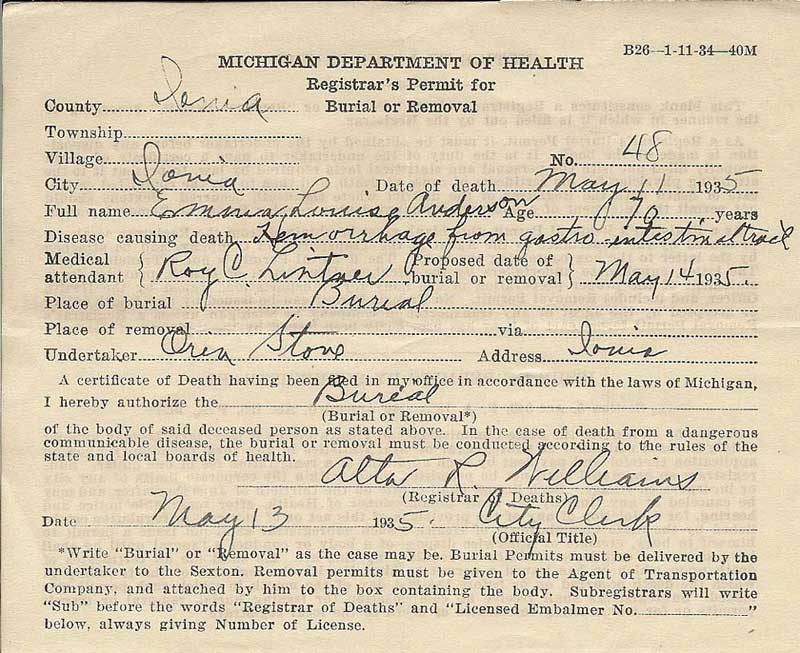 B26—1-11-34—40M
MICHIGAN DEPARTMENT OF HEALTH
Registrar's Permit for
Burial or Removal
County Ionia
Township
Village
No. 48
City Ionia Date of death May 11 1935
Full name Emma Louise Anderson Age 70 years
Disease causing death Hemorrhage from gastro intestinal tract
Medical attendant } Roy C. Lintner { Proposed date of burial or removal } May 14 1935.
Place of burial Burial
Place of removal via
Undertaker Orin Stone Address Ionia
A certificate of Death having been filed in my office in accordance with the laws of Michigan,
I hereby authorize the Burial
(Burial or Removal*)
of the body of said deceased person as stated above. In the case of death from a dangerous
communicable disease, the burial or removal must be conducted according to the rules of the
state and local boards of health.
Alta R. Williams
(Registrar of Deaths)
Date May 13 1935. City Clerk
(Official Title)
*Write "Burial" or "Removal" as the case may be. Burial Permits must be delivered by the
undertaker to the Sexton. Removal permits must be given to the Agent of Transportation
Company, and attached by him to the box containing the body. Subregistrars will write
"Sub" before the words "Registrar of Deaths" and "Licensed Embalmer No. "
below, always giving Number of License.